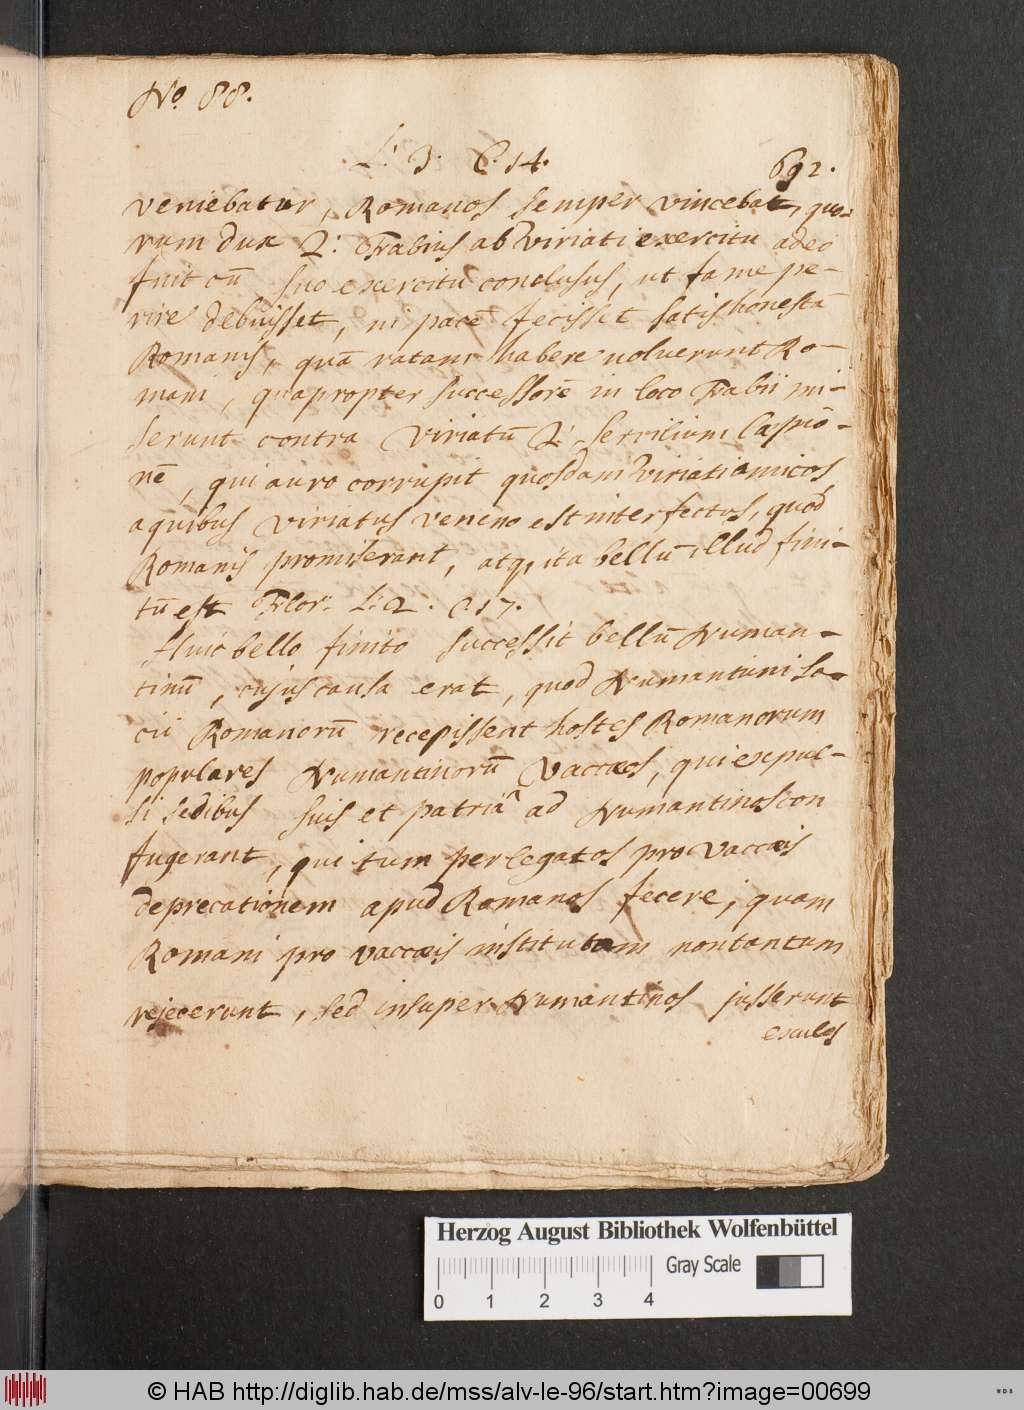 No. 88.
L. 3. C. 14. 692.
veniebatur, Romanos semper vincebat, quo-
rum dux Q: Fabius ab Viriati exercitu adeo
fuit cū suo exercitu conclusus, ut fame pe-
rire debuisset, ni pacē fecisset satis honestā
Romanis, quā ratam habere noluerunt Ro-
mani, quapropter successorē in loco Fabii mi-
serunt contra Viriatū Q. Servilium Cæpiō-
nē, qui auro corrupit quosdam Viriati amicos
a quibus Viriatus veneno est interfectus, quod
Romanis promiserant, atq, ita bellū illud fini-
tū est Flor: L: 2. C. 17.
Huic bello finito successit bellū Numan-
tinū, cujus causa erat, quod Numantini so-
cii Romanorū recepissent hostes Romanorum
populares Numantinorū Vaccæos, qui expul-
si sedibus suis et patriâ ad Numantinos con
fugerant, qui tum per legatos pro Vaccæis
deprecationem apud Romanos fecere; quam
Romani pro Vaccæis institutam non tantum
rejecerunt, sed insuper Numantinos jusserunt
exules
Herzog August Bibliothek Wolfenbüttel
Gray Scale
0 1 2 3 4
© HAB http://diglib.hab.de/mss/alv-le-96/start.htm?image=00699